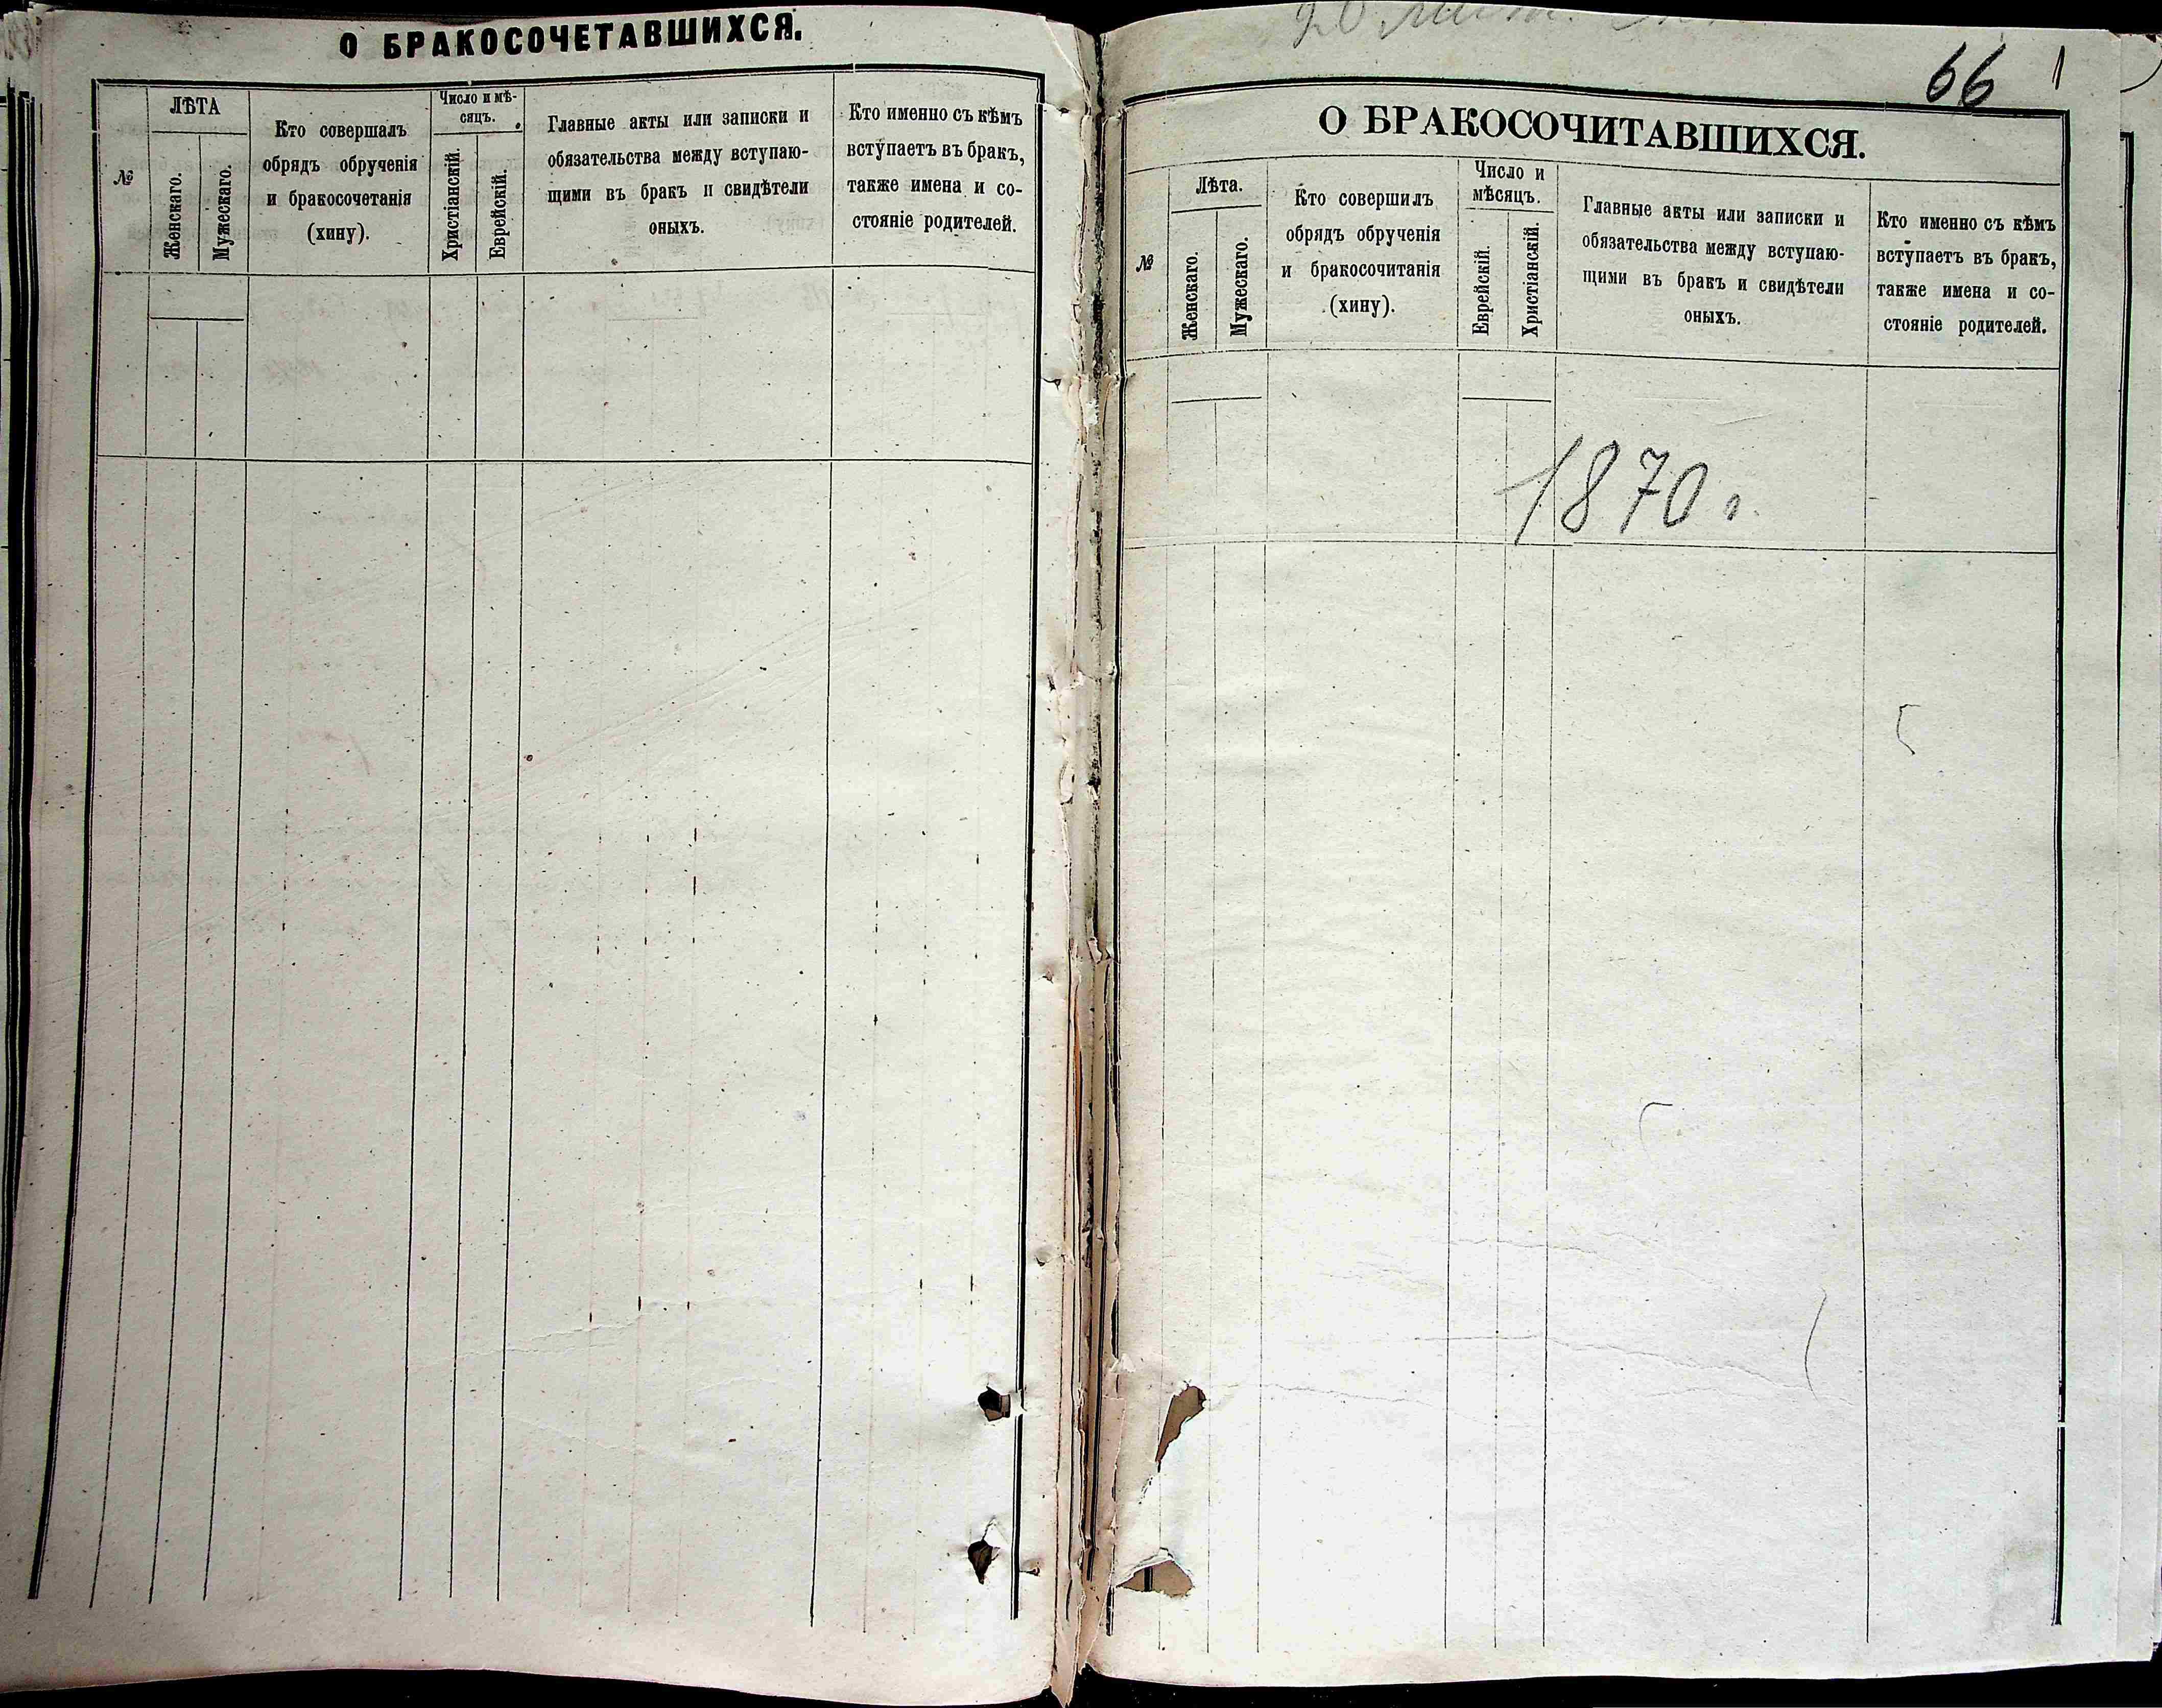 О БРАКОСОЧЕТАВШИХСЯ.
№
ЛѢТА
Женскаго.
Мужескаго.
Кто совершалъ
обрядъ обрученія
и бракосочетанія
(хину).
Число и мѣ-
сяцъ.
Христіанскій.
Еврейскій.
Главные акты или записки и
обязательства между вступаю-
щими въ бракъ и свидѣтели
оныхъ.
Кто именно съ кѣмъ
вступаетъ въ бракъ,
также имена и со-
стояніе родителей.
66
О БРАКОСОЧИТАВШИХСЯ.
№
Лѣта.
Женскаго.
Мужескаго.
Кто совершилъ
обрядъ обрученія
и бракосочитанія
(хину).
Число и
мѣсяцъ.
Еврейскій.
Христіанскій.
Главные акты или записки и
обязательства между вступаю-
щими въ бракъ и свидѣтели
оныхъ.
Кто именно съ кѣмъ
вступаетъ въ бракъ,
также имена и со-
стояніе родителей.
1870 г.